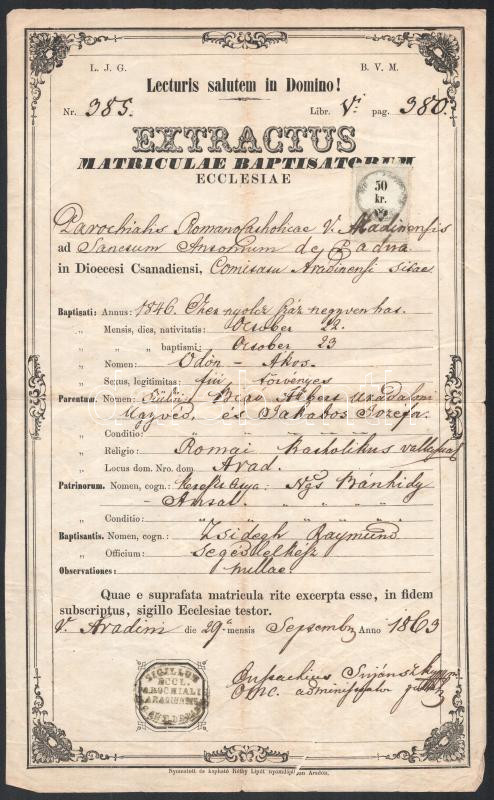 L. J. G. B. V. M.
Lecturis salutem in Domino!
Nr. 385. Libr. V. pag. 380.
EXTRACTUS
MATRICULAE BAPTISATORUM
ECCLESIAE
50
kr.
Parochialis Romano Catholicae V. Aradinensis
ad Sanctum Antonium de Padua
in Dioecesi Csanadiensi, Comitatu Aradinensi sitae
Baptisati: Annus: 1846. Ezer nyolcz száz negyven hat.
„ Mensis, dies, nativitatis: October 22.
„ „ „ baptismi: October 23
„ Nomen: Ödön – Ákos.
„ Sexus, legitimitas: fiú törvényes
Parentum. Nomen: Albert Uradalmi
Ügyvéd, és Jakabos Jozefa.
„ Conditio: „ „ „ „
„ Religio: Romai Katholikus
„ Locus dom. Nro. dom. Arad.
Patrinorum. Nomen, cogn.: Keresztatya: Ngs Bánhidy
Antal.
„ Conditio: „ „ „ „
Baptisantis. Nomen, cogn.: Zsidegh Raymund
„ Officium: segédlelkész
Observationes: nullae
Quae e suprafata matricula rite excerpta esse, in fidem
subscriptus, sigillo Ecclesiae testor.
V. Aradini die 29ª mensis Septemb Anno 1863
SIGILLUM
ECCL.
PAROCHIALI
ARADIENS
administrator
Nyomatott és kapható Réthy Lipót nyomdájában Aradon.